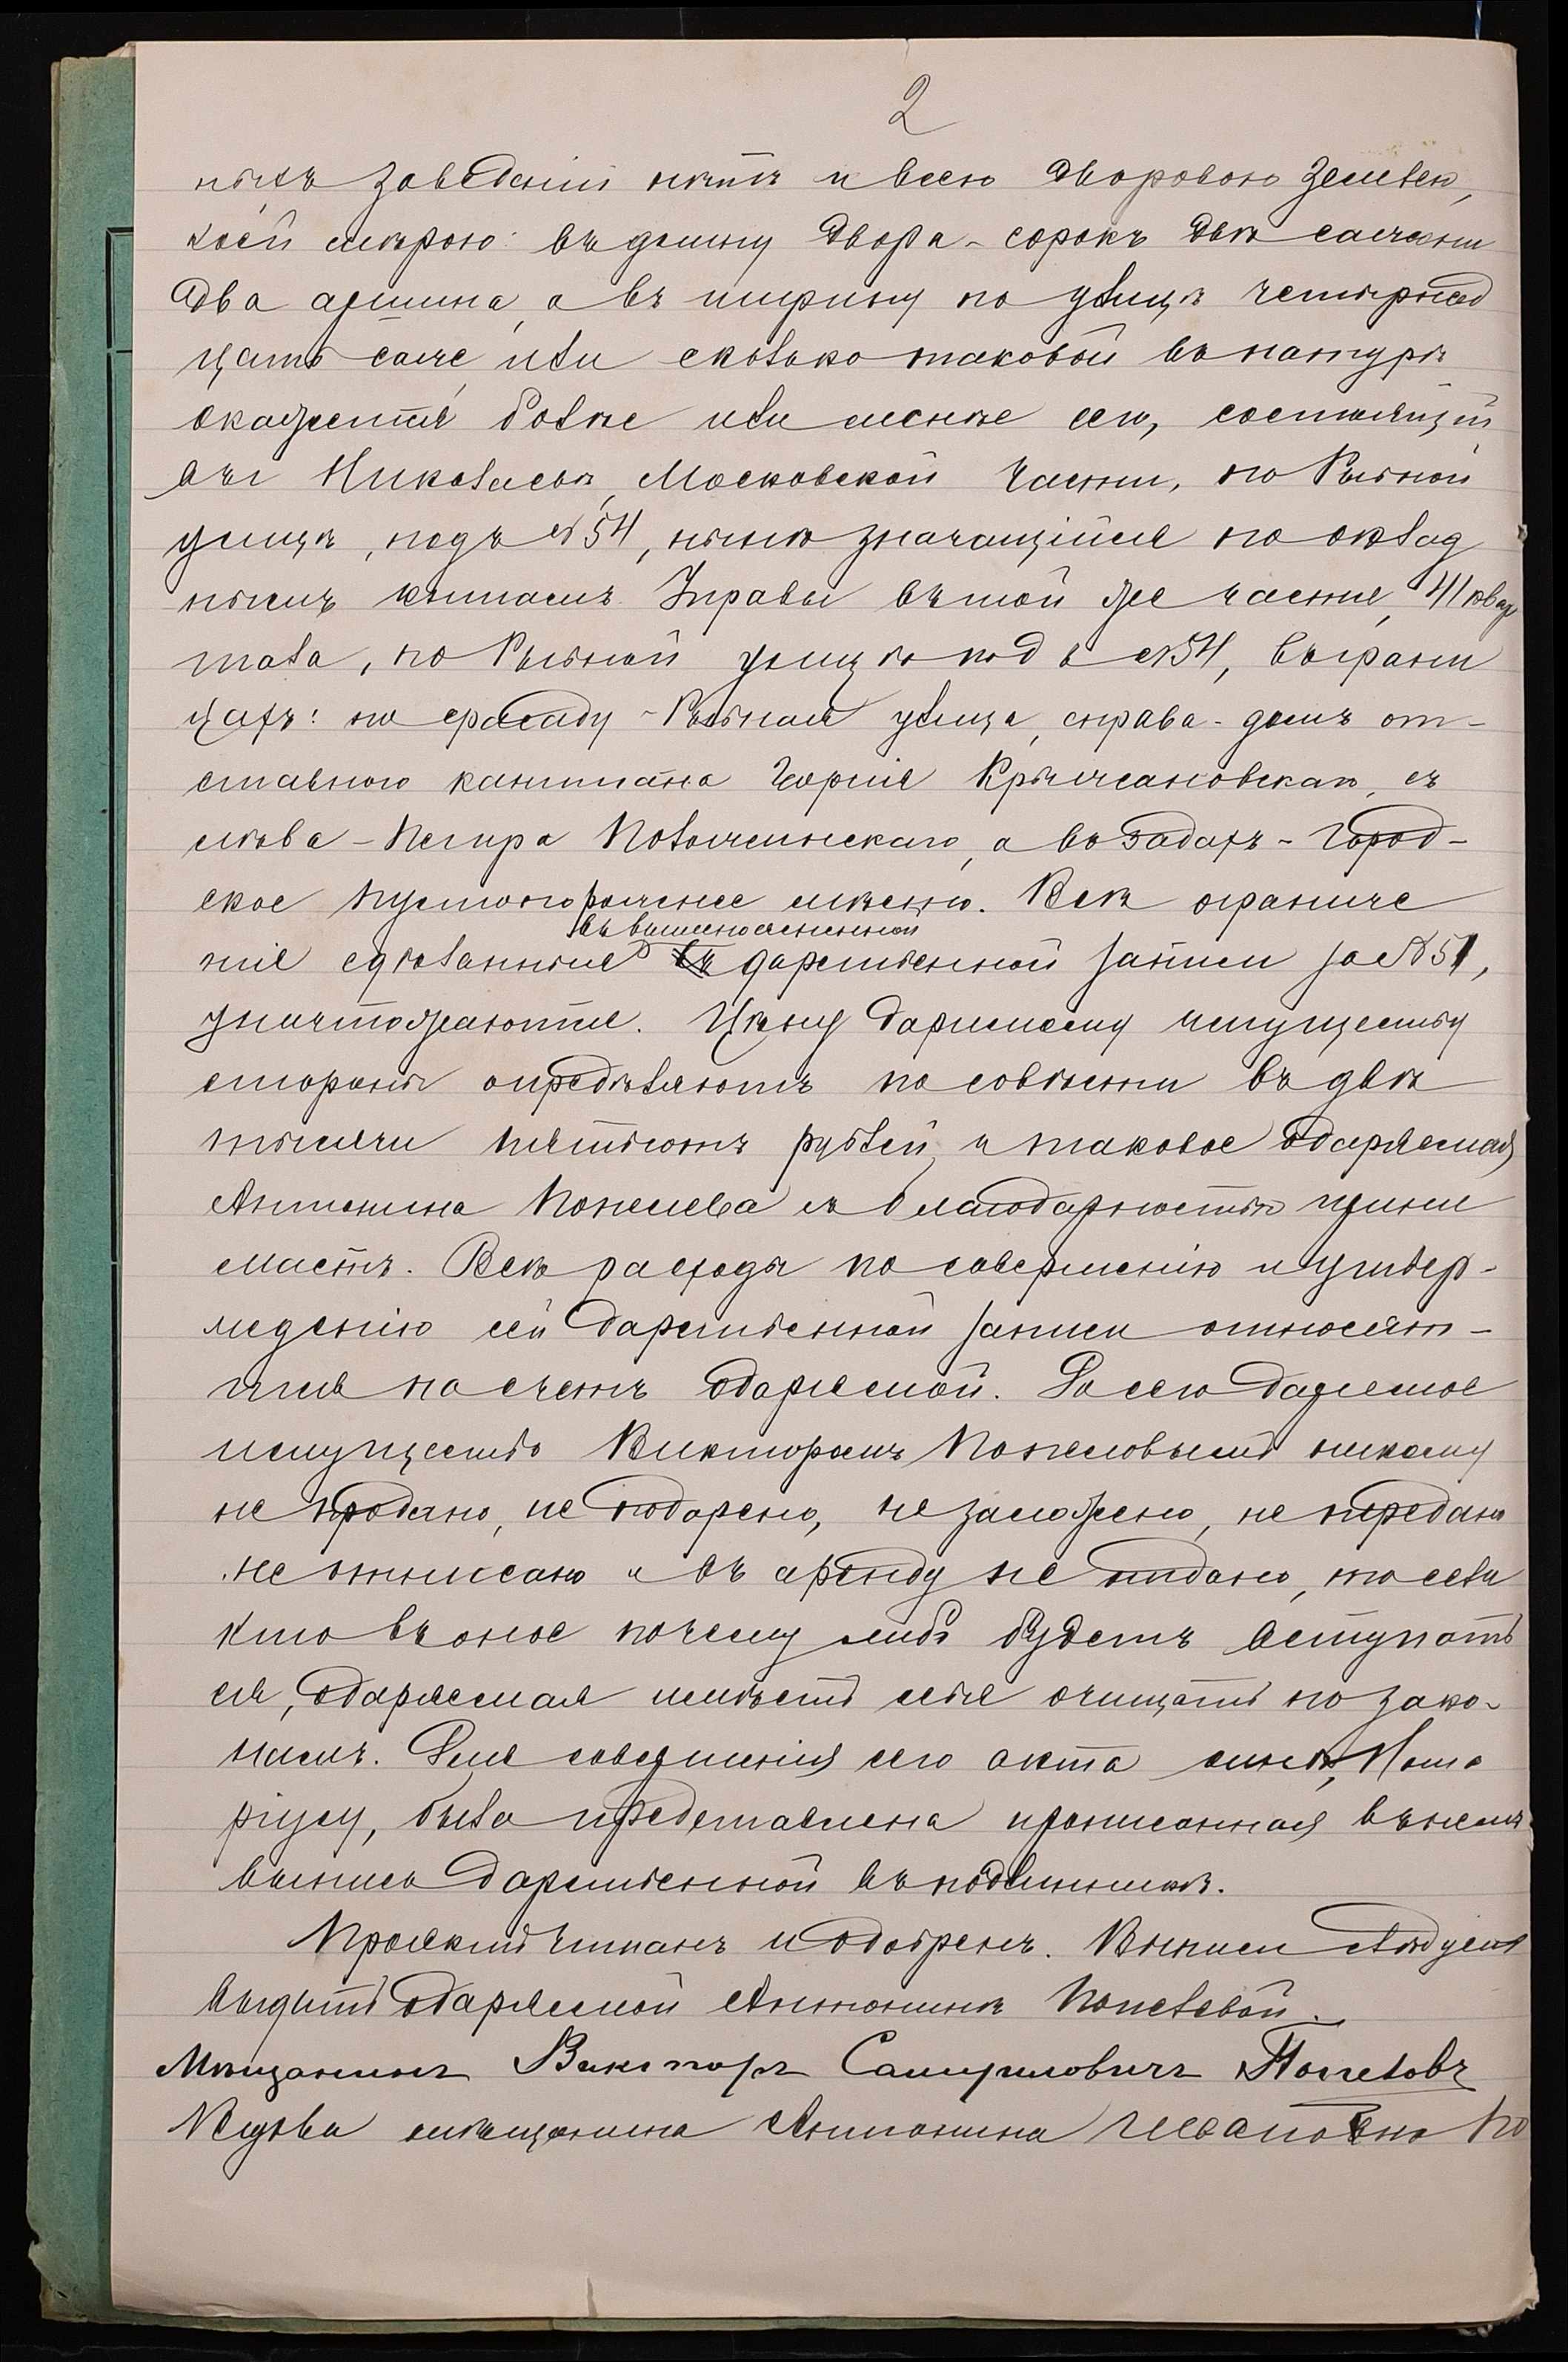 2
ныхъ заведеній нѣтъ и всею дворовою землею,
коей мѣрою: въ длину двора - сорокъ двѣ сажени
два аршина, а въ ширину по улицѣ четырнад
цать саже, или сколько таковой въ натурѣ
окажется болѣе или менѣе сего, состоящій
въ г Николаевѣ, Московской части, по Рыбной
улицѣ, подъ № 54, нынѣ значащійся по оклад
нымъ книгамъ Управы въ той же части, 41 квар
тала, по Рыбной улицѣ подъ № 54, въ грани
цахъ: по фасаду - Рыбная улица, справа - домъ от-
ставного капитана Георгія Крыжановскаго, съ
лѣва - Петра Поломеинскаго, а въ задахъ - Город-
ское пустопорожнее мѣсто. Всѣ ограниче
нія сдѣланныя въ вышепоясненной
дарственной записи за № 51,
уничтожаются. Цѣну даримому имуществу
стороны опредѣляютъ по совѣсти въ двѣ
тысячи пятьсотъ рублей, и таковое одаряемая
Антонина Попелева съ благодарностью прини
маетъ. Всѣ расходы по совершенію и утвер-
жденію сей дарственной записи относят-
ся на счетъ одаряемой. До сего даримое
имущество Викторомъ Попеловымъ никому
не продано, не подарено, не заложено, не передано
не отписано и въ аренду не отдано, то если
кто въ оное почему либо будетъ вступать
ся, одаряемая имѣетъ себя очищать по зако-
намъ. Для совершенія сего акта мнѣ, Нота
ріусу, была представлена прописанная въ немъ
выпись дарственной въ подлинникѣ.
Проектъ читанъ и одобренъ. Выпись слѣдуетъ
выдать одаряемой Антонинѣ Попелевой.
Мѣщанинъ Викторъ Самуиловичъ Попеловъ
Вдова мѣщанина Антонина Ивановна По